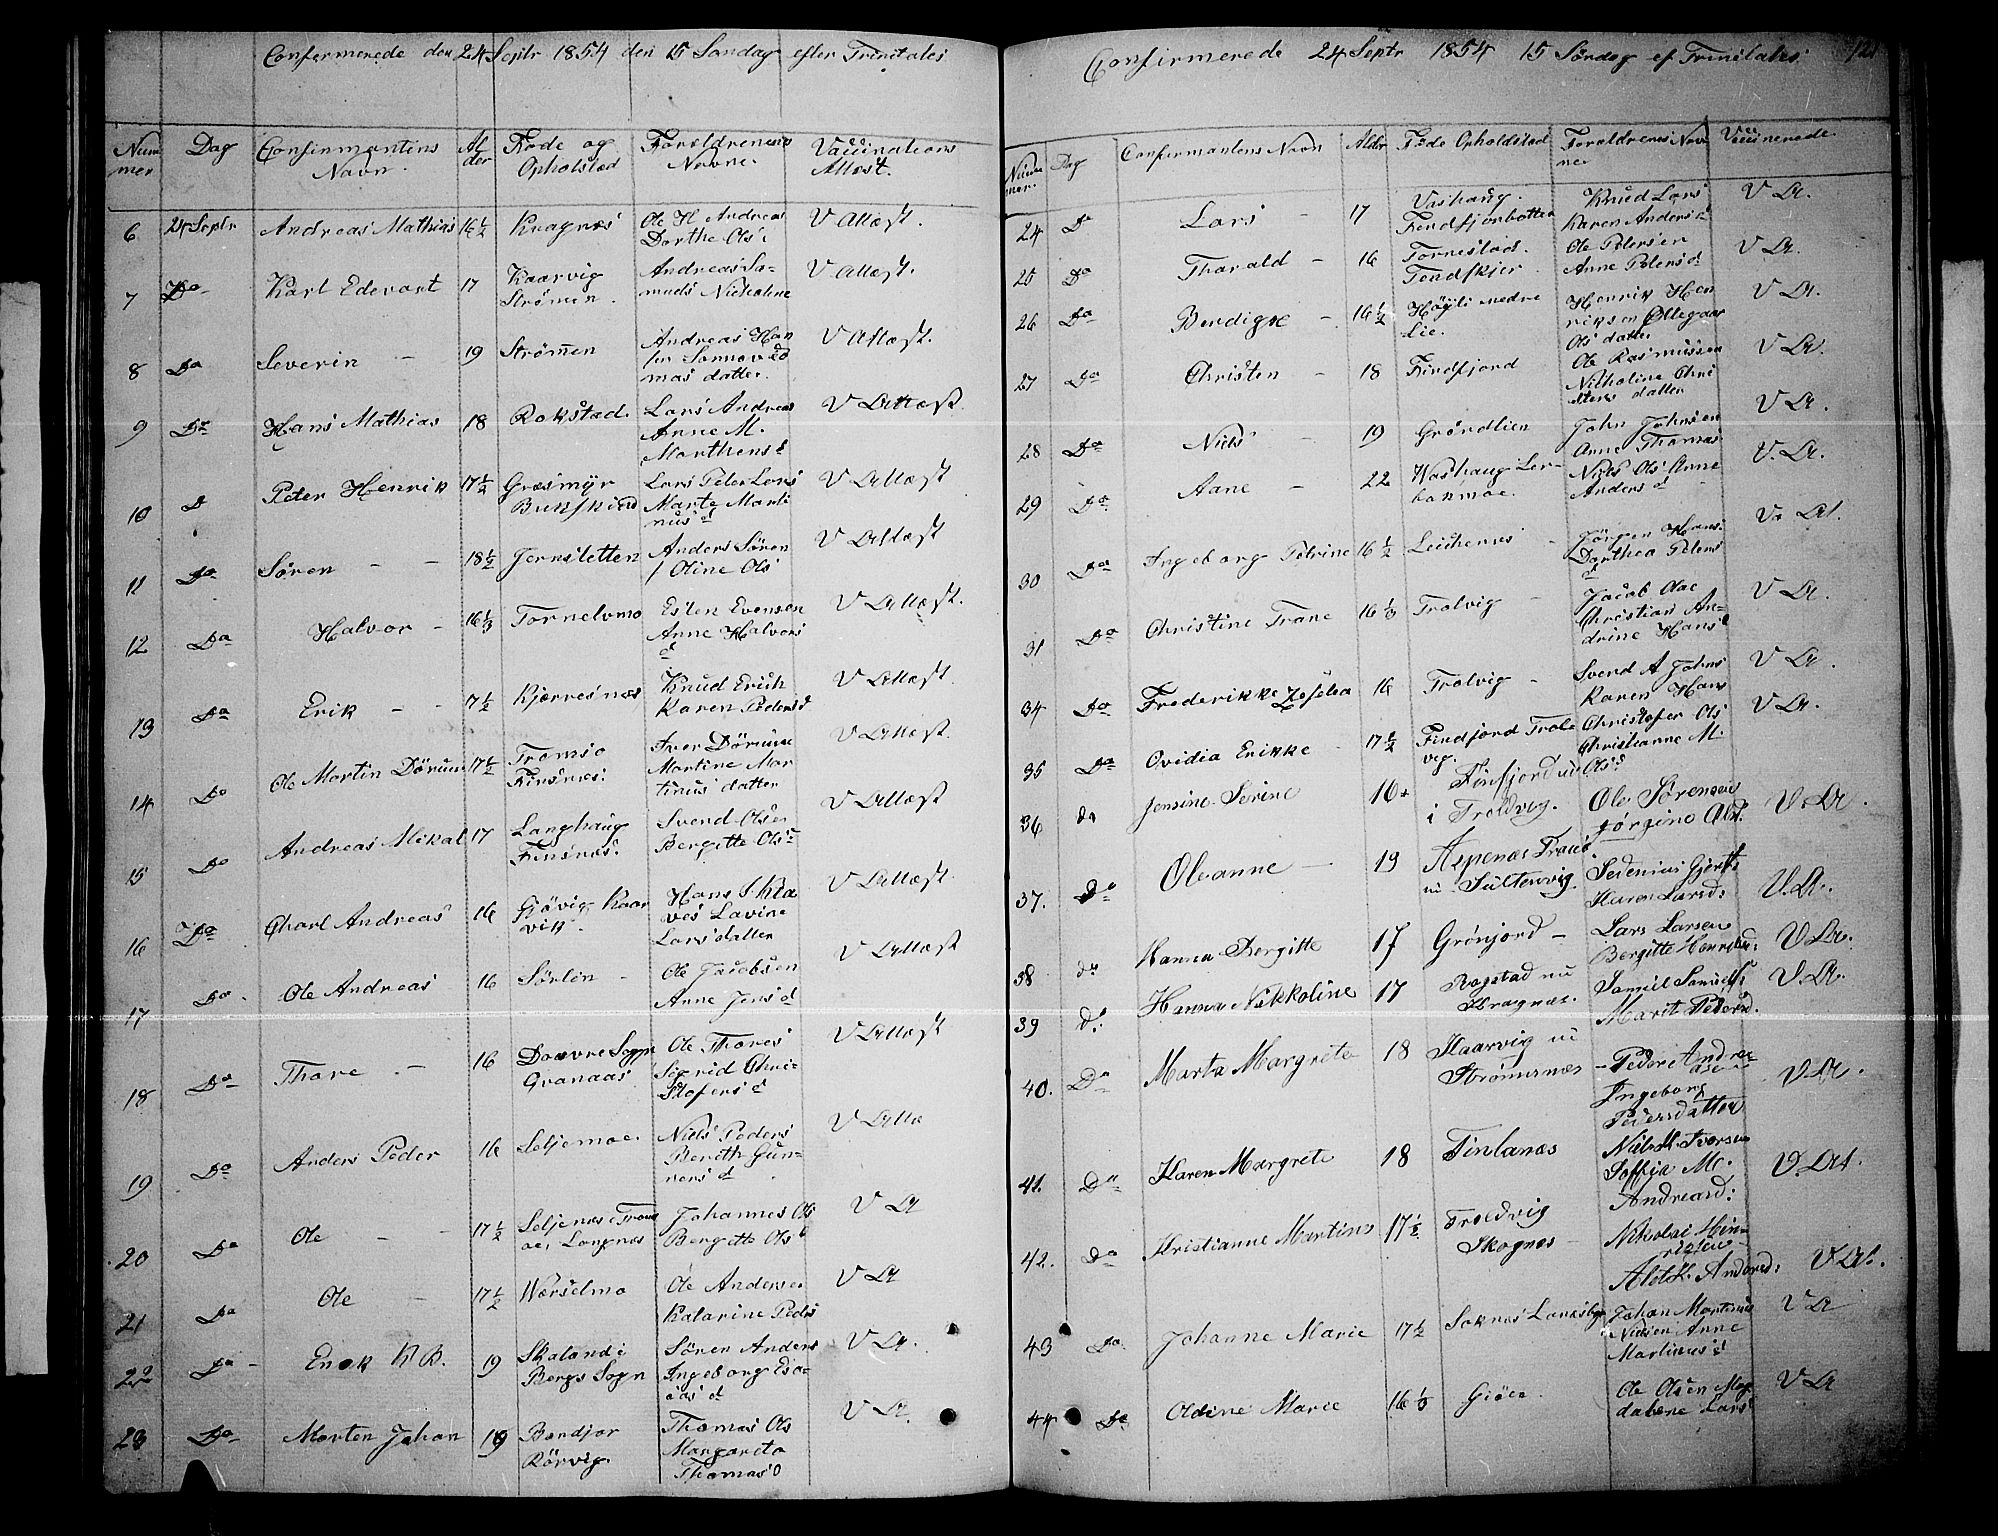 Confermerede den 24 Septr 1854 den 15 Søndag efter Trinitates
Num mer Dag Confirmantins Navn. Al der Føde og Opholstæd Forældrenens Navne. Vaccinations Attest.
6 24 Septr Andreas Mathias 16 1/2 Kragnæs Ole H Andreas
Dorthe Ols:
V Attest.
7 Do Karl Edevart 17 Kaarvig
Strømen.
Andreas Sa-
muels Nicholine
V Attest.
8 Do Severin - 19 Strømen Andreas Han
mas datter.
V Attest.
9 Do Hans Mathias 18 Rokstad. Lars Andreas
Anne M.
Marthens d
V Attest.
10 D Peter Henrik 17 1/2 Græsmyr
Lars Peter Lars
Marte Marti
nus d
V Attest
11 Do Søren - - 18 1/2 Jernsletten Anders Søren
Oline Ols
V Attest
12 Do Halvor - 16 1/3 Tornelvmo Esten Evensen
Anne Halvors
d
V Attest.
13 Do Erik - - 17 1/2 Kjerresnæs Knud Erich
Karen Peders d
V Attest.
14 Do Ole Martin Dørum 17 1/2 Tromsø
Finsnæs.
Iver Dørum
Martine Mar
tinus datter
V Attest.
15 Do Andreas Mikal 17 Langhaug
Finsnæs.
Svend Olsen
Bergitte Ols d
V Attest
16 Do Charl Andreas 16 Gjøvig Kaar
vik.
Hans
Lavine
Lars datter
V Attest.
17 Do Ole Andreas 16 Sørlin - Ole Jacobsen
Anne Jens d
V Attest
18 Do Thore - 16 Doavre Sogn
Granaas
Ole Thores
Sigrid Chri-
stofers d
V Attest
19 Do Anders Peder 16 Seljemoe. Niels Peders
Bereth Gun-
ners d
V Atte
20 Do Ole - - 17 1/2 Seljenæs Trane
Langnæs
Johannes Ols
Bergitte Ols d
V A
21 Do Ole - 17 1/2 Wørselmo Ole Andersen
Katarine Peds
V A
22 Do Enok K B. 19 Skaland i
Bergs Sogn
Søren Anders
Ingeborg Esai-
as d
V A.
23 Do Morten Johan 19 Bondjor
Rörvig.
Thomas Ols
Margareta
Thomas d
V A.
Confirmerede 24 Septr 1854 15 Søndag ef Trinitates
Numer. Dag Confirmantens Navn Alder Føde Opholdstad Foraldrenes Nav
ne
Vaccinerede
24 D Lars - 17 Vashaug.
Findfjorbotten
Knud Lars
Karen Anders d
V A.
25 Do Tharald - 16 Tornestad.
Ole Petersen
Anne Peters d
V A.
26 Do Bendigte - 16 1/2 Høgli nedre
Lie.
Henrik Hen
riksen Ollegaar
Ols datter
V A.
27 Do Christen - 18 Findfjord Ole Rasmussen
Nicholine Chri
stens datter
V A.
28 Do Niels - 19 Grøndlien John Johnsen
Anne Thomas
V A.
29 Do Aane - 22 Washaug Ler-
bakmoe.
Niels Ols Anne
Anders d
V. A.
30 Do Ingeborg Petrine 16 1/2 Jørgen Hans
Dorthea Peters
d
V. At.
31 Do Christine Trane 16 1/3 Trolvig - Jacob Olae
Christian An-
drine Hans d
V A.
34 Do Frederikke Josefea 16 Trolvig - Svend A Johns
Karen Hans
V A.
35 Do Ovidia Erikke 17 1/2 Findfjord Trole
vig.
Christofer Ols
Christianne M.
Ols d
V A.
36 do Jensine Serine 16 Finfjord nu
i Troldvig.
Ole Sørensen
Jørgine Olsd.
V. A.
37. Do Oleanne - 19 Aspenæs Tranø
nu Sultenvig.
Sedenius Gjerts
Karen Larsd:
V. A.
38 do Hanna Bergitte 17 Grønjord - Lars Larsen
Bergitte
V. A.
39 do: Hanna Nikkoline 17 Rogstad nu
Kragnæs.
Samuel Samuels
Marit Pedersd.
V. A.
40. Do Marta Margrete 18 Kaarvig nu
Strømsnæs
- Peder Andre
asen
Ingeborg
Pedersdatter
V. A.
41. Do Karen Margrete 18 Finlanæs Niels M. Iversen
Soffia M.
Andreasd:
V. At.
42. Do Kristianne Martine 17 1/2 Troldvig
Skognæs -
Nikolai Hen-
riksen
Andersd:
V. At.
43 Do. Johanne Marie 17 1/2 Johan Martinus
Nielsen Anne
Martinus d
V A
44 Do Oldine Marie 16 1/3 Giöen. Ole Olsen Mag
dalene Lars
V A